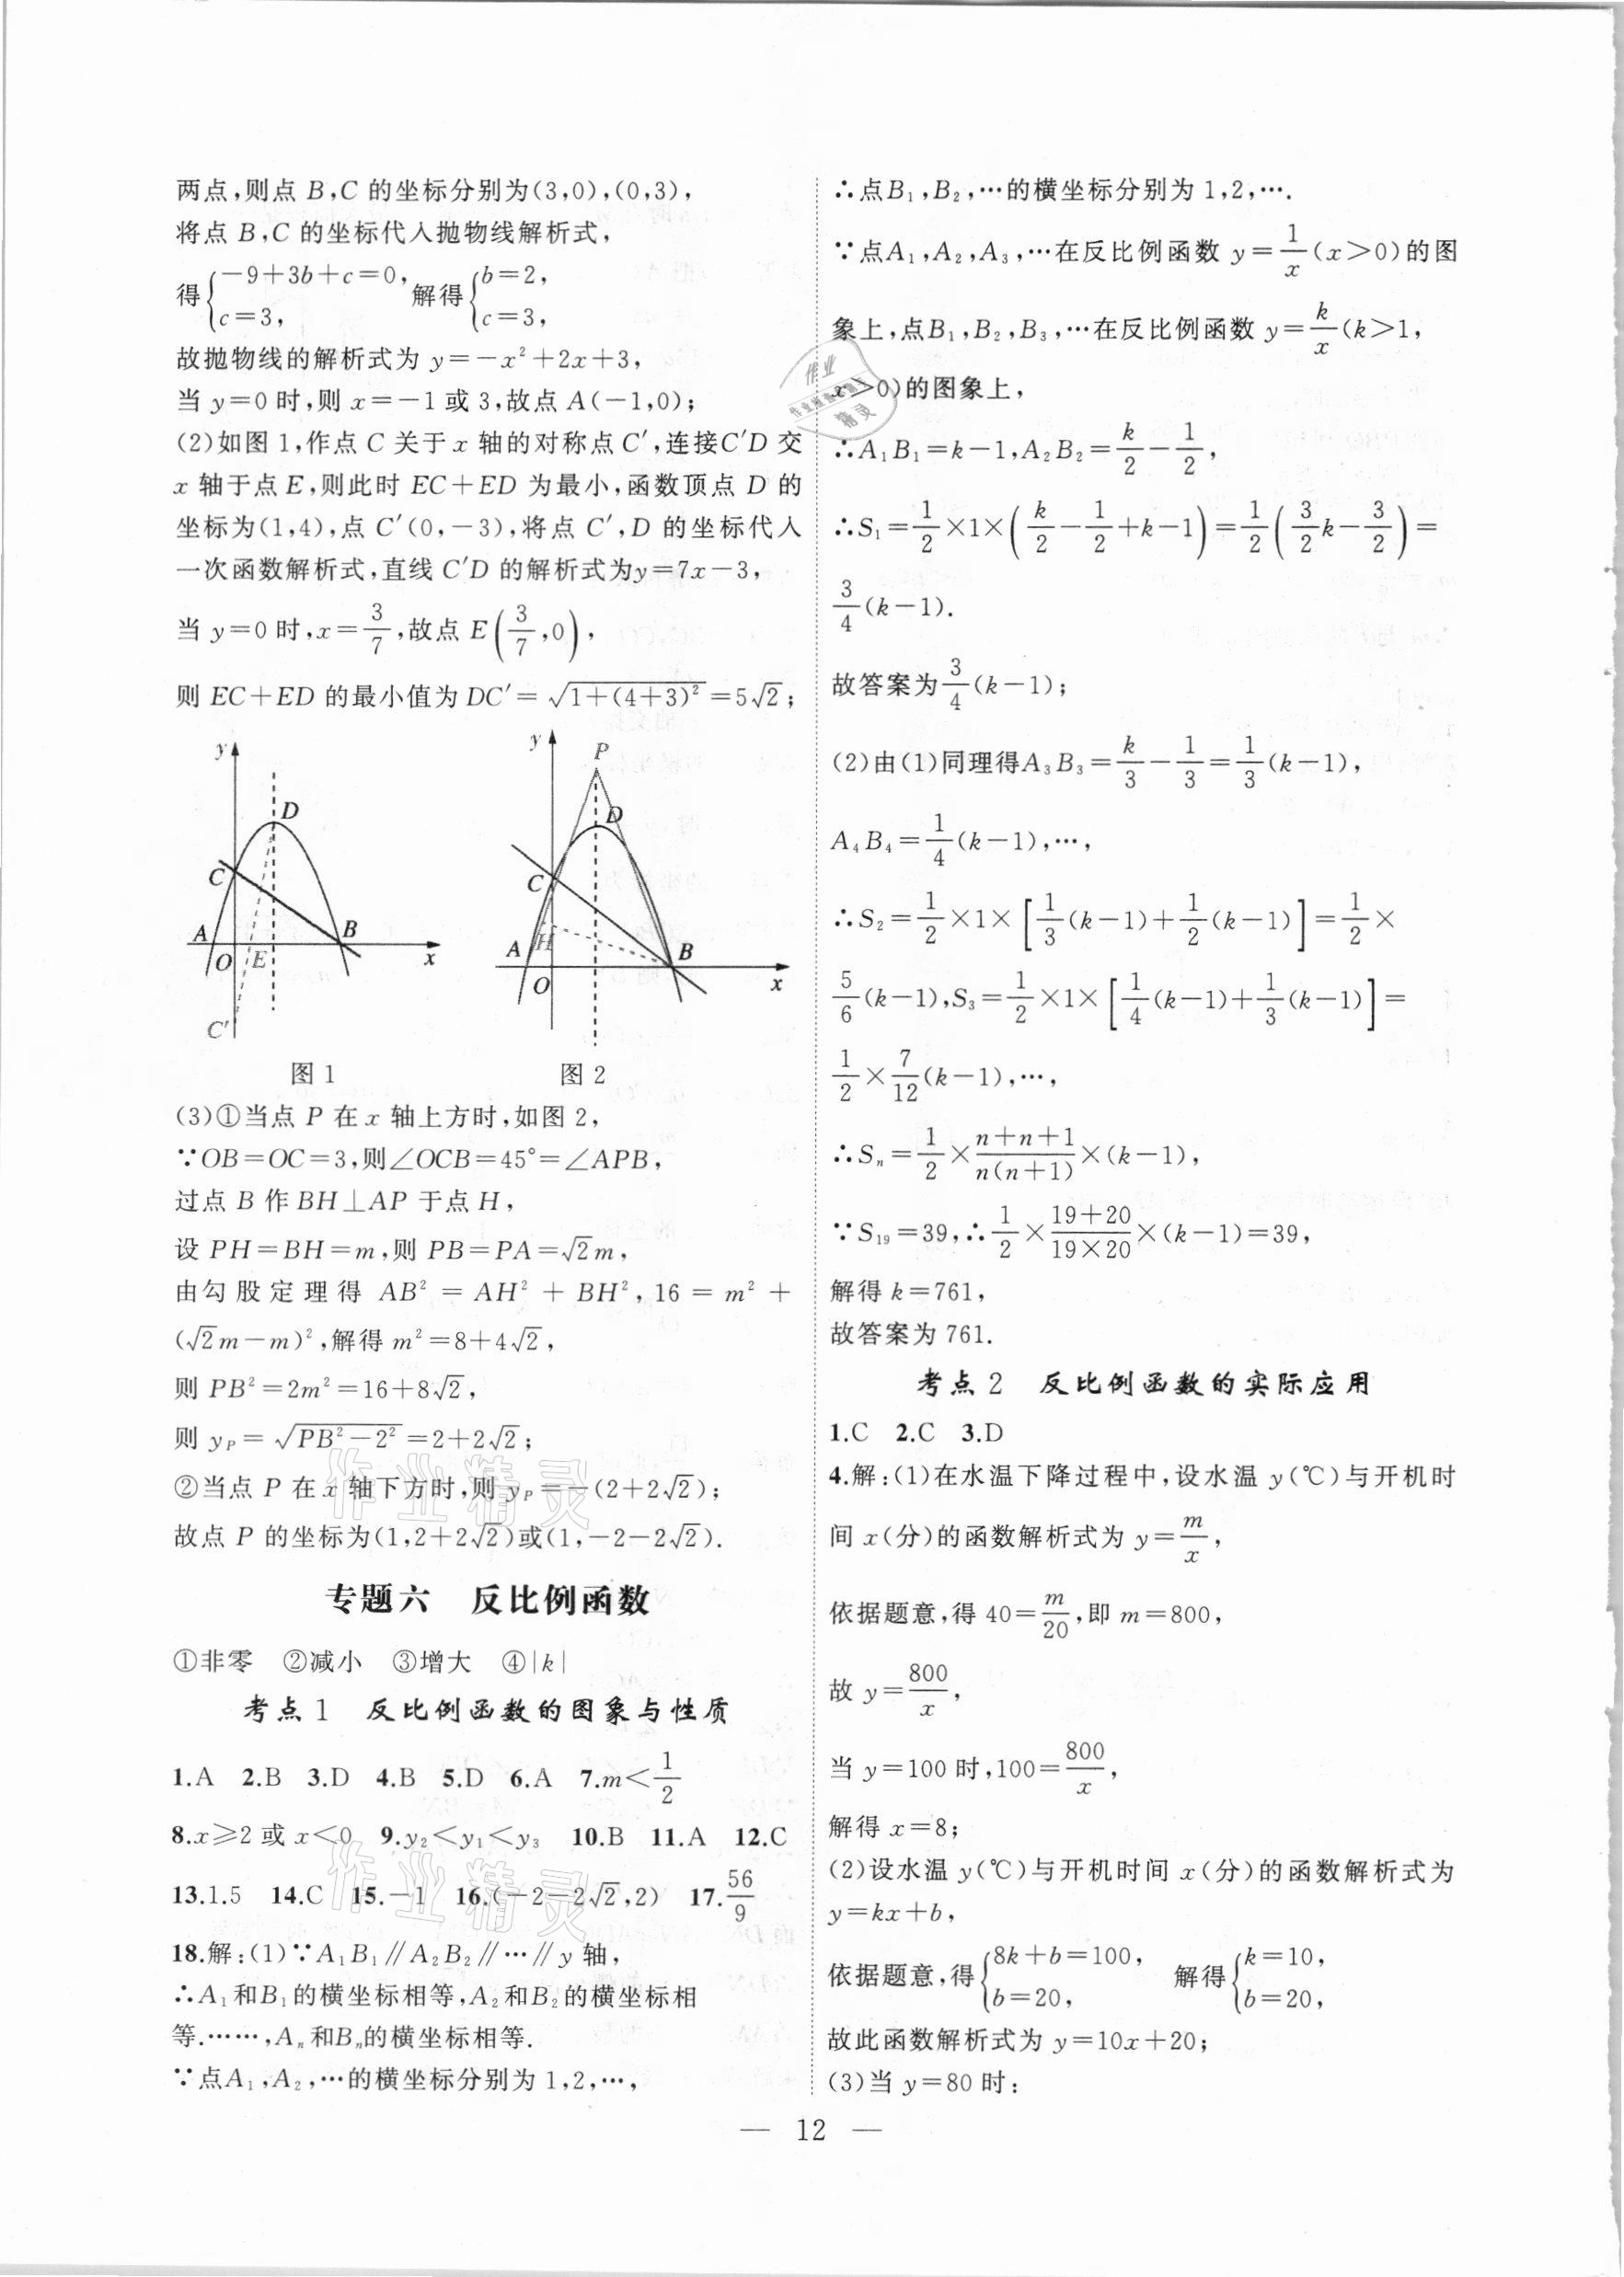 两点,则点 B,C 的坐标分别为(3,0),(0,3),
将点 B,C 的坐标代入抛物线解析式,
得{-9+3b+c=0, c=3, 解得{b=2, c=3,
故抛物线的解析式为 y=-x²+2x+3,
当 y=0 时,则 x=-1 或 3,故点 A(-1,0);
(2)如图 1,作点 C 关于 x 轴的对称点 C′,连接C′D 交
x 轴于点 E,则此时 EC+ED 为最小,函数顶点 D 的
坐标为(1,4),点 C′(0,-3),将点 C′,D 的坐标代入
一次函数解析式,直线 C′D 的解析式为y=7x-3,
当 y=0 时,x=3/7,故点 E(3/7,0),
则 EC+ED 的最小值为 DC′=√(1+(4+3)²)=5√2;
y D C A O E B x C′
y P D C A H O B x
图 1 图 2
(3)①当点 P 在 x 轴上方时,如图 2,
∵OB=OC=3,则∠OCB=45°=∠APB,
过点 B 作 BH⊥AP 于点 H,
设 PH=BH=m,则 PB=PA=√2m,
由勾股定理得 AB²=AH²+BH²,16=m²+
(√2m-m)²,解得 m²=8+4√2,
则 PB²=2m²=16+8√2,
则 y_P=√(PB²-2²)=2+2√2;
②当点 P 在 x 轴下方时,则 y_P=-(2+2√2);
故点 P 的坐标为(1,2+2√2)或(1,-2-2√2).
专题六 反比例函数
①非零 ②减小 ③增大 ④|k|
考点 1 反比例函数的图象与性质
1.A 2.B 3.D 4.B 5.D 6.A 7.m<1/2
8.x≥2 或 x<0 9.y₂<y₁<y₃ 10.B 11.A 12.C
13.1.5 14.C 15.-1 16.(-2-2√2,2) 17.56/9
18.解:(1)∵A₁B₁∥A₂B₂∥…∥y 轴,
∴A₁和B₁的横坐标相等,A₂和B₂的横坐标相
等.……,Aₙ和Bₙ的横坐标相等.
∵点A₁,A₂,…的横坐标分别为 1,2,…,
∴点B₁,B₂,…的横坐标分别为 1,2,….
∵点A₁,A₂,A₃,…在反比例函数 y=1/x(x>0)的图
象上,点B₁,B₂,B₃,…在反比例函数 y=k/x(k>1,
x>0)的图象上,
∴A₁B₁=k-1,A₂B₂=k/2-1/2,
∴S₁=1/2×1×(k/2-1/2+k-1)=1/2(3/2k-3/2)=
3/4(k-1).
故答案为3/4(k-1);
(2)由(1)同理得A₃B₃=k/3-1/3=1/3(k-1),
A₄B₄=1/4(k-1),…,
∴S₂=1/2×1×[1/3(k-1)+1/2(k-1)]=1/2×
5/6(k-1),S₃=1/2×1×[1/4(k-1)+1/3(k-1)]=
1/2×7/12(k-1),…,
∴Sₙ=1/2×(n+n+1)/(n(n+1))×(k-1),
∵S₁₉=39,∴1/2×(19+20)/(19×20)×(k-1)=39,
解得 k=761,
故答案为 761.
考点 2 反比例函数的实际应用
1.C 2.C 3.D
4.解:(1)在水温下降过程中,设水温 y(℃)与开机时
间 x(分)的函数解析式为 y=m/x,
依据题意,得 40=m/20,即 m=800,
故 y=800/x,
当 y=100 时,100=800/x,
解得 x=8;
(2)设水温 y(℃)与开机时间 x(分)的函数解析式为
y=kx+b,
依据题意,得{8k+b=100, b=20, 解得{k=10, b=20,
故此函数解析式为 y=10x+20;
(3)当 y=80 时:
— 12 —
作业精灵
作业精灵
作业
精灵